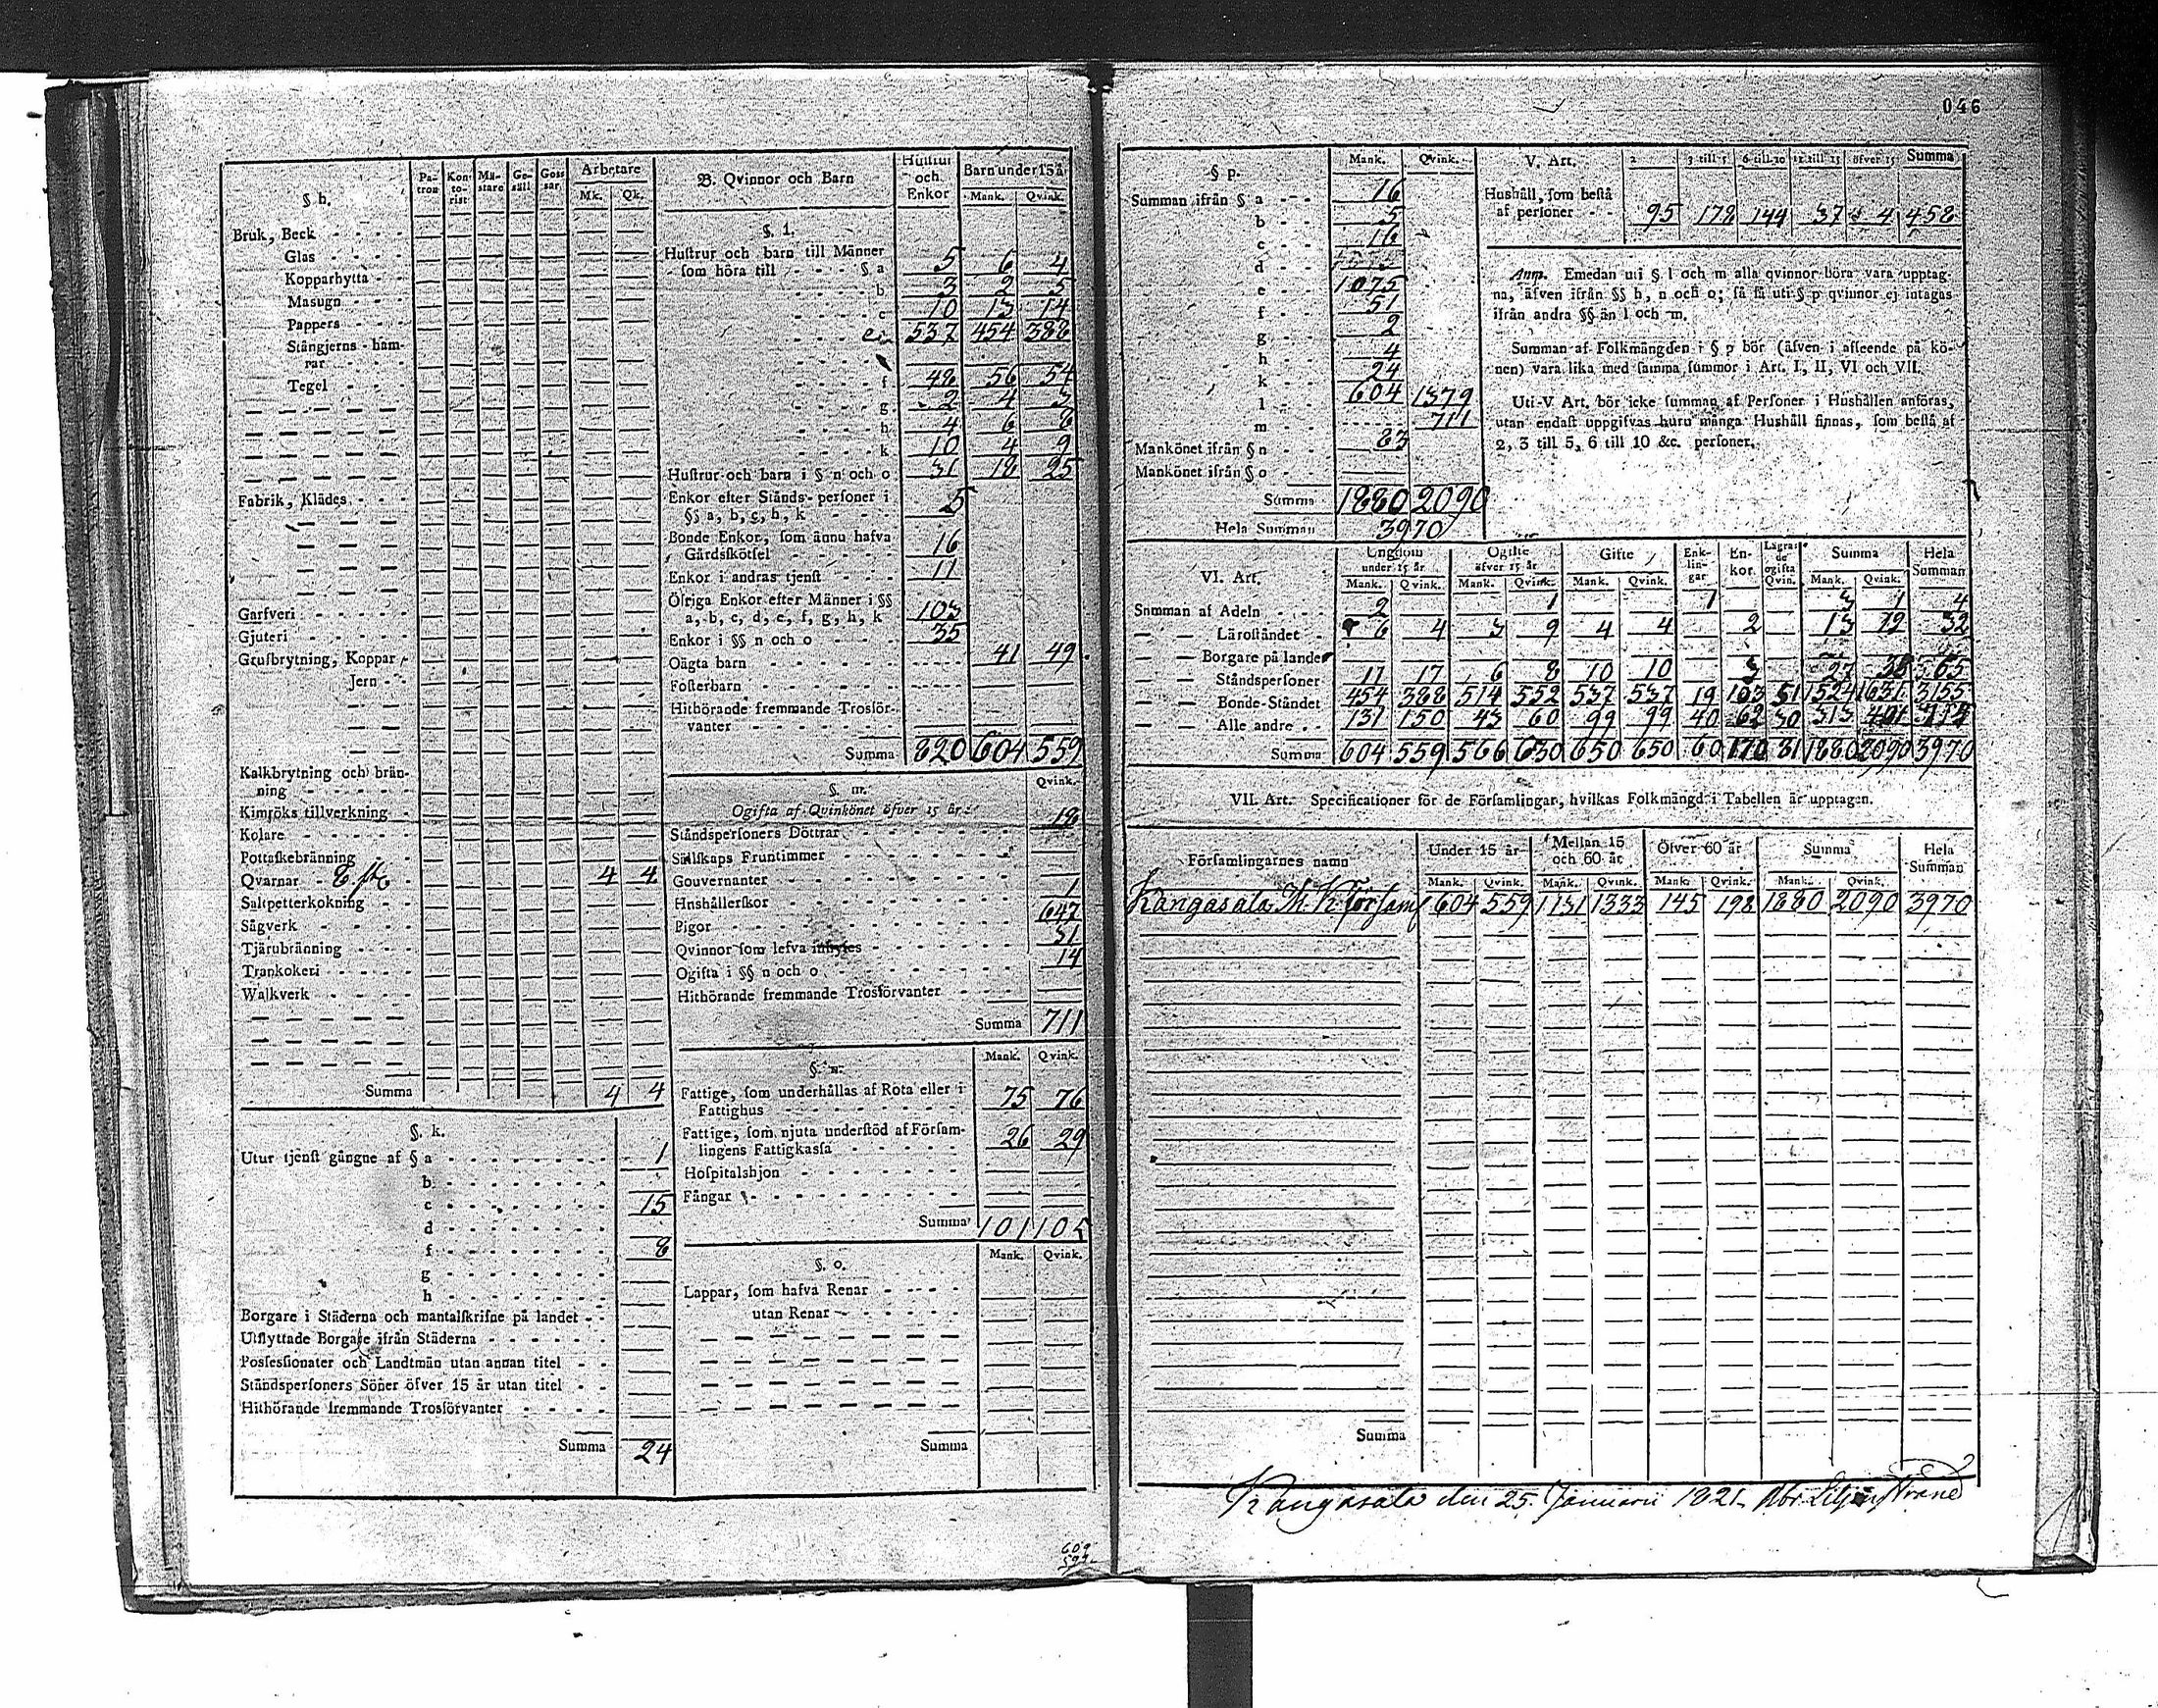 046
§ h.
Pa-tron Kon-to-rist Mä-stare Ge-säll Goss-sar Arbetare
Mk. Qk.
Bruk, Beck
Glas
Kopparhytta
Masugn
Pappers
Stångjerns-ham-
rar
Tegel
Fabrik, Klädes
Garfveri
Gjuteri
Grufbrytning, Koppar
Jern
Kalkbrytning och brän-
ning
Kimröks tillverkning
Kolare
Pottaskebränning
Qvarnar - 8 st 4 4
Saltpetterkokning
Sågverk
Tjärubränning
Trankokeri
Walkverk
Summa 4 4
§. k.
Utur tjenst gångne af § a 1
b
c 15
d
f 8
g
h
Borgare i Städerna och mantalskrifne på landet
Utflyttade Borgare ifrån Städerna
Possessionater och Landtmän utan annan titel
Ståndspersoners Söner öfver 15 år utan titel
Hithörande fremmande Trosförvanter
Summa 24
B. Qvinnor och Barn Hustrur och Enkor Barn under 15 år
Mank. Qvink.
§. l.
Hustrur och barn till Männer
som höra till § a 5 6 4
b 3 2 5
c 10 13 14
e 537 454 388
f 48 56 54
g 2 4 3
h 4 6 8
k 10 4 9
Hustrur och barn i § n och o 31 18 25
Enkor efter Stånds-personer i
§§ a, b, c, h, k 5
Bonde Enkor, som ännu hafva
Gårdsskötsel 16
Enkor i andras tjenst 11
Öfriga Enkor efter Männer i §§
a, b, c, d, e, f, g, h, k 103
Enkor i §§ n och o 35
Oägta barn 41 49
Fosterbarn
Hithörande fremmande Trosför-
vanter
Summa 820 604 559
§. m.
Qvink.
Ogifta af Qvinkönet öfver 15 år:
Ståndspersoners Döttrar 18
Sällskaps Fruntimmer
Gouvernanter
Hushållerskor 1
Pigor 647
Qvinnor som lefva inhyses 31
Ogifta i §§ n och o 14
Hithörande fremmande Trosförvanter
Summa 711
§. n.
Mank. Qvink.
Fattige, som underhållas af Rota eller i
Fattighus 75 76
Fattige, som njuta understöd af Försam-
lingens Fattigkassa 26 29
Hospitalshjon
Fångar
Summa 101 105
§. o.
Mank. Qvink.
Lappar, som hafva Renar
utan Renar
Summa
609
§ p. Mank. Qvink.
Summan ifrån § a 16
b 5
c 16
d
e 1075
f 51
g 2
h 4
k 24
l 604 1379
m 711
Mankönet ifrån § n 83
Mankönet ifrån § o
Summa 1880 2090
Hela Summan 3970
V. Art. 2 3 till 5 6 till 10 11 till 15 öfver 15 Summa
Hushåll, som bestå
af personer 95 178 144 37 4 458
Anm. Emedan uti § l och m alla qvinnor böra vara upptag-
na, äfven ifrån §§ h, n och o; så få uti § p qvinnor ej intagas
ifrån andra §§ än l och m.
Summan af Folkmängden i § p bör (äfven i afseende på kö-
nen) vara lika med samma summor i Art. I, II, VI och VII.
Uti V Art. bör icke summan af Personer i Hushållen anföras,
utan endast uppgifvas huru många Hushåll finnas, som bestå af
2, 3 till 5, 6 till 10 &c. personer.
VI. Art. Ungdom under 15 år Ogifte öfver 15 år Gifte Enk-lin-gar En-kor Lägrade ogifta Qvin. Summa Hela Summan
Mank. Qvink. Mank. Qvink. Mank. Qvink. Mank. Qvink.
Summan af Adeln 2 1 1 3 1 4
— — Läroståndet 6 4 3 9 4 4 2 13 19 32
— — Borgare på landet
— — Ståndspersoner 11 17 6 8 10 10 3 27 38 65
— — Bonde-Ståndet 454 388 514 552 537 537 19 103 51 1524 1631 3155
— — Alle andre 131 150 43 60 99 99 40 62 30 313 401
Summa 604 559 566 630 650 650 60 170 81 1880 2090 3970
VII. Art. Specificationer för de Församlingar, hvilkas Folkmängd i Tabellen är upptagen.
Församlingarnes namn Under 15 år Mellan 15 och 60 år Öfver 60 år Summa Hela Summan
Mank. Qvink. Mank. Qvink. Mank. Qvink. Mank. Qvink.
Kangasala M. K. Församl 604 559 1131 1333 145 198 1880 2090 3970
Summa
Kangasala den 25 Januarii 1821. Abr. Liljenstrand